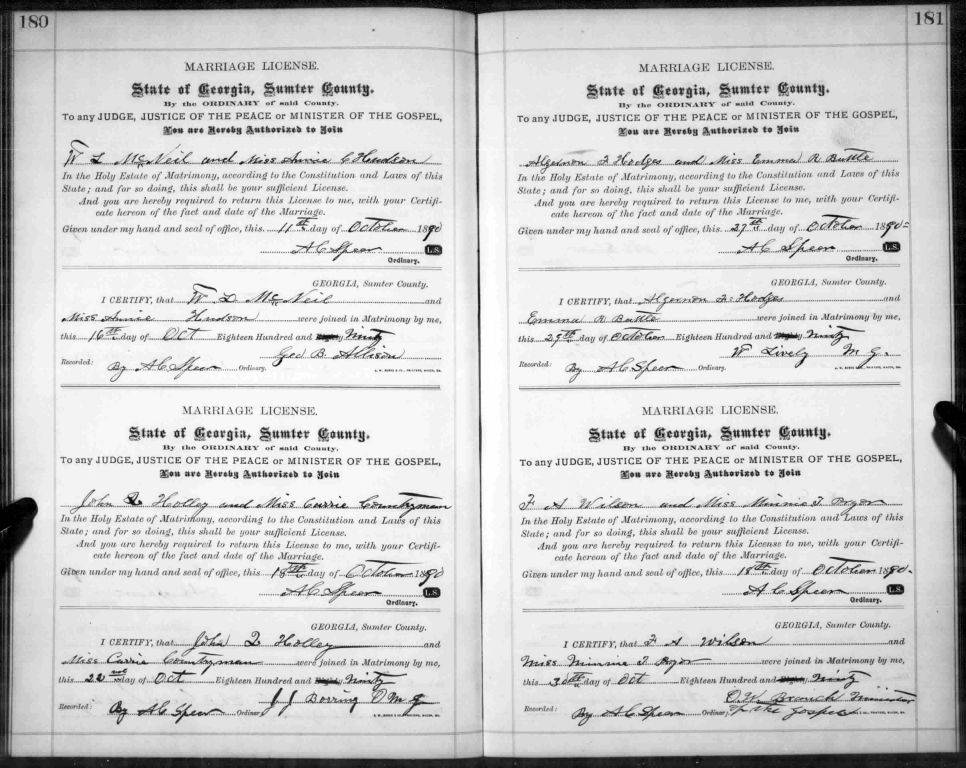 180
MARRIAGE LICENSE.
State of Georgia, Sumter County.
By the ORDINARY of said County.
To any JUDGE, JUSTICE OF THE PEACE or MINISTER OF THE GOSPEL,
You are Hereby Authorized to Join
W L McNeil and Miss Annie C Hudson
In the Holy Estate of Matrimony, according to the Constitution and Laws of this
State; and for so doing, this shall be your sufficient License.
And you are hereby required to return this License to me, with your Certifi-
cate hereon of the fact and date of the Marriage.
Given under my hand and seal of office, this 11th day of October 1890
A C Speer L.S.
Ordinary.
GEORGIA, Sumter County.
I CERTIFY, that W L McNeil and
Miss Annie Hudson were joined in Matrimony by me,
this 16th day of Oct Eighteen Hundred and Ninty
Geo B Allison
Recorded: By A C Speer Ordinary.
MARRIAGE LICENSE.
State of Georgia, Sumter County.
By the ORDINARY of said County.
To any JUDGE, JUSTICE OF THE PEACE or MINISTER OF THE GOSPEL,
You are Hereby Authorized to Join
John Q Holley and Miss Carrie Countryman
In the Holy Estate of Matrimony, according to the Constitution and Laws of this
State; and for so doing, this shall be your sufficient License.
And you are hereby required to return this License to me, with your Certifi-
cate hereon of the fact and date of the Marriage.
Given under my hand and seal of office, this 18th day of October 1890
A C Speer L.S.
Ordinary.
GEORGIA, Sumter County.
I CERTIFY, that John Q Holley and
Miss Carrie Countryman were joined in Matrimony by me,
this 22nd day of Oct Eighteen Hundred and Ninty
J J Dorring M G
Recorded: By A C Speer Ordinary
181
MARRIAGE LICENSE.
State of Georgia, Sumter County.
By the ORDINARY of said County.
To any JUDGE, JUSTICE OF THE PEACE or MINISTER OF THE GOSPEL,
You are Hereby Authorized to Join
Algernon F Hodges and Miss Emma R Buttle
In the Holy Estate of Matrimony, according to the Constitution and Laws of this
State; and for so doing, this shall be your sufficient License.
And you are hereby required to return this License to me, with your Certifi-
cate hereon of the fact and date of the Marriage.
Given under my hand and seal of office, this 27th day of October 1890
A C Speer L.S.
Ordinary.
GEORGIA, Sumter County.
I CERTIFY, that Algernon F. Hodges and
Emma R Buttle were joined in Matrimony by me,
this 29th day of October Eighteen Hundred and Ninty
W Lively M G.
Recorded: By A C Speer Ordinary.
MARRIAGE LICENSE.
State of Georgia, Sumter County.
By the ORDINARY of said County.
To any JUDGE, JUSTICE OF THE PEACE or MINISTER OF THE GOSPEL,
You are Hereby Authorized to Join
F A Wilson and Miss Minnie T Pryor
In the Holy Estate of Matrimony, according to the Constitution and Laws of this
State; and for so doing, this shall be your sufficient License.
And you are hereby required to return this License to me, with your Certifi-
cate hereon of the fact and date of the Marriage.
Given under my hand and seal of office, this 18th day of October 1890
A C Speer L.S.
Ordinary.
GEORGIA, Sumter County.
I CERTIFY, that F A Wilson and
Miss Minnie T Pryor were joined in Matrimony by me,
this 30th day of Oct Eighteen Hundred and Ninty
Branch Minister
Recorded: By A C Speer Ordinary. of the Gospel